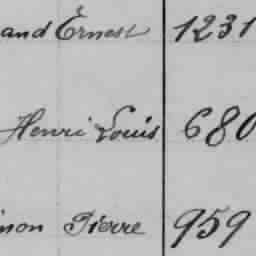 and Ernest 1231
Henri Louis 680
mon Pierre 959